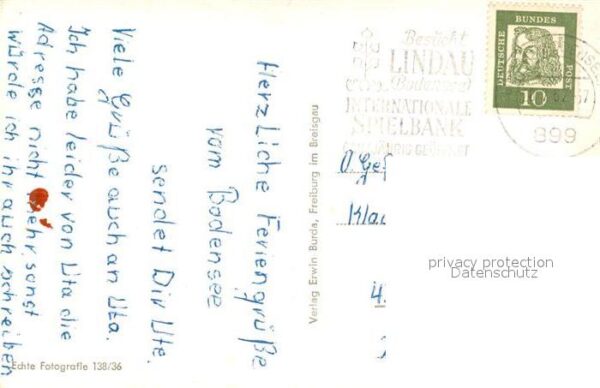 Herzliche Feriengrüße
vom Bodensee
sendet Dir Ute.
Viele Grüße auch an Uta.
Ich habe leider von Uta die
Adresse nicht mehr, sonst
würde ich ihr auch schreiben
Echte Fotografie 138/36
Verlag Erwin Burda, Freiburg im Breisgau
Besucht
LINDAU
Bodensee
INTERNATIONALE
SPIELBANK
GANZJÄHRIG GEÖFFNET
DEUTSCHE BUNDES POST
10
999
Kla
4
privacy protection
Datenschutz